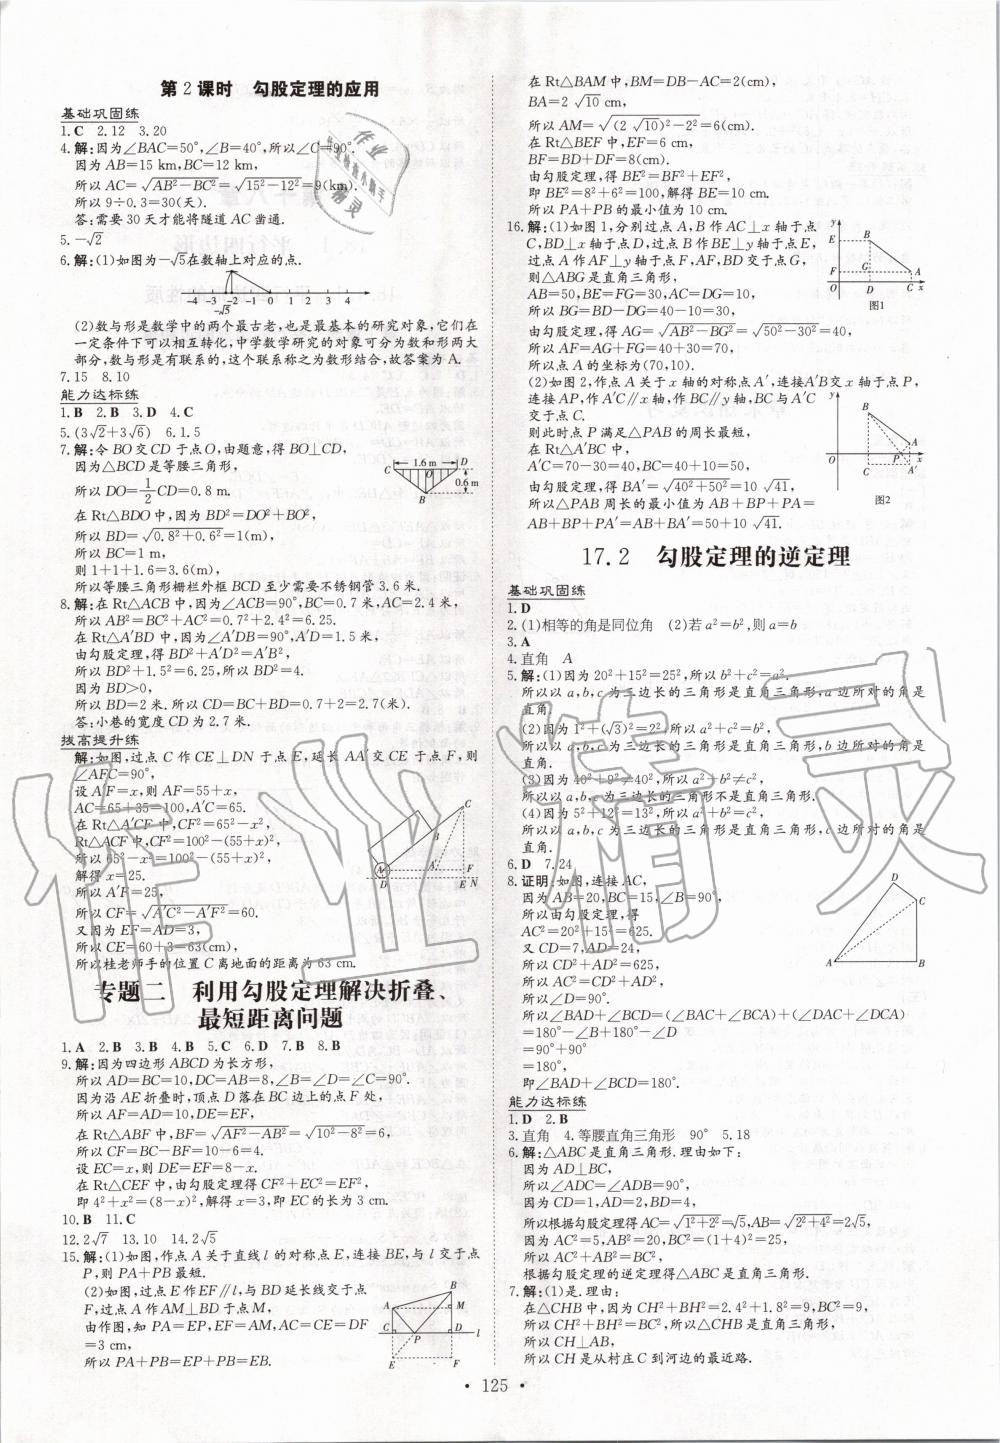 第2课时　勾股定理的应用
基础巩固练
1.C　2.12　3.20
4.解:因为∠BAC=50°,∠B=40°,所以∠C=90°.
因为AB=15 km,BC=12 km,
所以AC=√(AB²-BC²)=√(15²-12²)=9(km).
所以9÷0.3=30(天).
答:需要30天才能将隧道AC凿通.
5.-√2
6.解:(1)如图为-√5在数轴上对应的点.
-4 -3 -2 -1 0 1 2 3 4
-√5
(2)数与形是数学中的两个最古老,也是最基本的研究对象,它们在
一定条件下可以相互转化,中学数学研究的对象可分为数和形两大
部分,数与形是有联系的,这个联系称之为数形结合,故答案为A.
7.15　8.10
能力达标练
1.B　2.B　3.D　4.C
5.(3√2+3√6)　6.1.5
7.解:令BO交CD于点O,由题意,得BO⊥CD,
因为△BCD是等腰三角形,
所以DO=1/2CD=0.8 m.
在Rt△BDO中,因为BD²=DO²+BO²,
所以BD=√(0.8²+0.6²)=1(m),
所以BC=1 m,
则1+1+1.6=3.6(m),
所以等腰三角形栅栏外框BCD至少需要不锈钢管3.6米.
C 1.6 m D
O
0.6 m
B
8.解:在Rt△ACB中,因为∠ACB=90°,BC=0.7米,AC=2.4米,
所以AB²=BC²+AC²=0.7²+2.4²=6.25.
在Rt△A′BD中,因为∠A′DB=90°,A′D=1.5米,
由勾股定理,得BD²+A′D²=A′B²,
所以BD²+1.5²=6.25,所以BD²=4.
因为BD>0,
所以BD=2米.所以CD=BC+BD=0.7+2=2.7(米).
答:小巷的宽度CD为2.7米.
拔高提升练
解:如图,过点C作CE⊥DN于点E,延长AA′交CE于点F,则
∠AFC=90°,
设A′F=x,则AF=55+x,
AC=65+35=100,A′C=65.
在Rt△A′CF中,CF²=65²-x²,
Rt△ACF中,CF²=100²-(55+x)²,
所以65²-x²=100²-(55+x)²,
解得x=25.
所以A′F=25,
所以CF=√(A′C²-A′F²)=60.
又因为EF=AD=3,
所以CE=60+3=63(cm),
所以桂老师手的位置C离地面的距离为63 cm.
C
B
A A′ F
D E N
专题二　利用勾股定理解决折叠、
最短距离问题
1.A　2.B　3.B　4.B　5.C　6.D　7.B　8.B
9.解:因为四边形ABCD为长方形,
所以AD=BC=10,DC=AB=8,∠B=∠D=∠C=90°.
因为沿AE折叠时,顶点D落在BC边上的点F处,
所以AF=AD=10,DE=EF,
在Rt△ABF中,BF=√(AF²-AB²)=√(10²-8²)=6,
所以CF=BC-BF=10-6=4.
设EC=x,则DE=EF=8-x.
在Rt△CEF中,由勾股定理得CF²+EC²=EF²,
即4²+x²=(8-x)²,解得x=3,即EC的长为3 cm.
10.B　11.C
12.2√7　13.10　14.2√5
15.解:(1)如图,作点A关于直线l的对称点E,连接BE,与l交于点
P,则PA+PB最短.
(2)如图,过点E作EF∥l,与BD延长线交于点
F,过点A作AM⊥BD于点M,
由作图,知PA=EP,EM=AM,AC=CE=DF
=3 cm,
所以PA+PB=PB+EP=EB.
B
A M
C P D l
E F
在Rt△BAM中,BM=DB-AC=2(cm),
BA=2√10 cm,
所以AM=√((2√10)²-2²)=6(cm).
在Rt△BEF中,EF=6 cm,
BF=BD+DF=8(cm).
由勾股定理,得BE²=BF²+EF²,
即BE²=8²+6²=100,解得BE=10(cm).
所以PA+PB的最小值为10 cm.
16.解:(1)如图1,分别过点A,B作AC⊥x轴于点
C,BD⊥x轴于点D,过点B作BE⊥y轴于点E,
过点A作AF⊥y轴于点F,AF,BD交于点G,
则△ABG是直角三角形,
AB=50,BE=FG=30,AC=DG=10,
所以BG=BD-DG=40-10=30,
由勾股定理,得AG=√(AB²-BG²)=√(50²-30²)=40,
所以AF=AG+FG=40+30=70,
所以点A的坐标为(70,10).
y
E B
F G A
O D C x
图1
(2)如图2,作点A关于x轴的对称点A′,连接A′B交x轴于点P,
连接AP,作A′C∥x轴,作BC∥y轴,BC与A′C
交于点C.
则此时点P满足△PAB的周长最短,
在Rt△A′BC中,
A′C=70-30=40,BC=40+10=50,
由勾股定理,得BA′=√(40²+50²)=10√41.
所以△PAB周长的最小值为AB+BP+PA=
AB+BP+PA′=AB+BA′=50+10√41.
y
B
A
O P x
C A′
图2
17.2　勾股定理的逆定理
基础巩固练
1.D
2.(1)相等的角是同位角　(2)若a²=b²,则a=b
3.A
4.直角　A
5.解:(1)因为20²+15²=25²,所以b²+c²=a².
所以以a,b,c为三边长的三角形是直角三角形,a边所对的角是
直角.
(2)因为1²+(√3)²=2²,所以a²+c²=b².
所以以a,b,c为三边长的三角形是直角三角形,b边所对的角是
直角.
(3)因为40²+9²≠40²,所以a²+b²≠c²,
所以以a,b,c为三边长的三角形不是直角三角形.
(4)因为5²+12²=13²,所以a²+b²=c²,
所以以a,b,c为三边长的三角形是直角三角形,c边所对的角是
直角.
6.D　7.24
8.证明:如图,连接AC,
因为AB=20,BC=15,∠B=90°,
所以由勾股定理,得
AC²=20²+15²=625.
又CD=7,AD=24,
所以CD²+AD²=625,
所以AC²=CD²+AD²,
所以∠D=90°.
所以∠BAD+∠BCD=(∠BAC+∠BCA)+(∠DAC+∠DCA)
=180°-∠B+180°-∠D
=90°+90°
=180°,
即∠BAD+∠BCD=180°.
D
C
A B
能力达标练
1.D　2.B
3.直角　4.等腰直角三角形　90°　5.18
6.解:△ABC是直角三角形.理由如下:
因为AD⊥BC,
所以∠ADC=∠ADB=90°,
因为CD=1,AD=2,BD=4,
所以根据勾股定理得AC=√(1²+2²)=√5,AB=√(2²+4²)=2√5,
因为AC²=5,AB²=20,BC²=(1+4)²=25,
所以AC²+AB²=BC²,
根据勾股定理的逆定理得△ABC是直角三角形.
7.解:(1)是.理由:
在△CHB中,因为CH²+BH²=2.4²+1.8²=9,BC²=9,
所以CH²+BH²=BC²,所以△CHB是直角三角形,
所以CH⊥AB,
所以CH是从村庄C到河边的最近路.
• 125 •
作业精灵